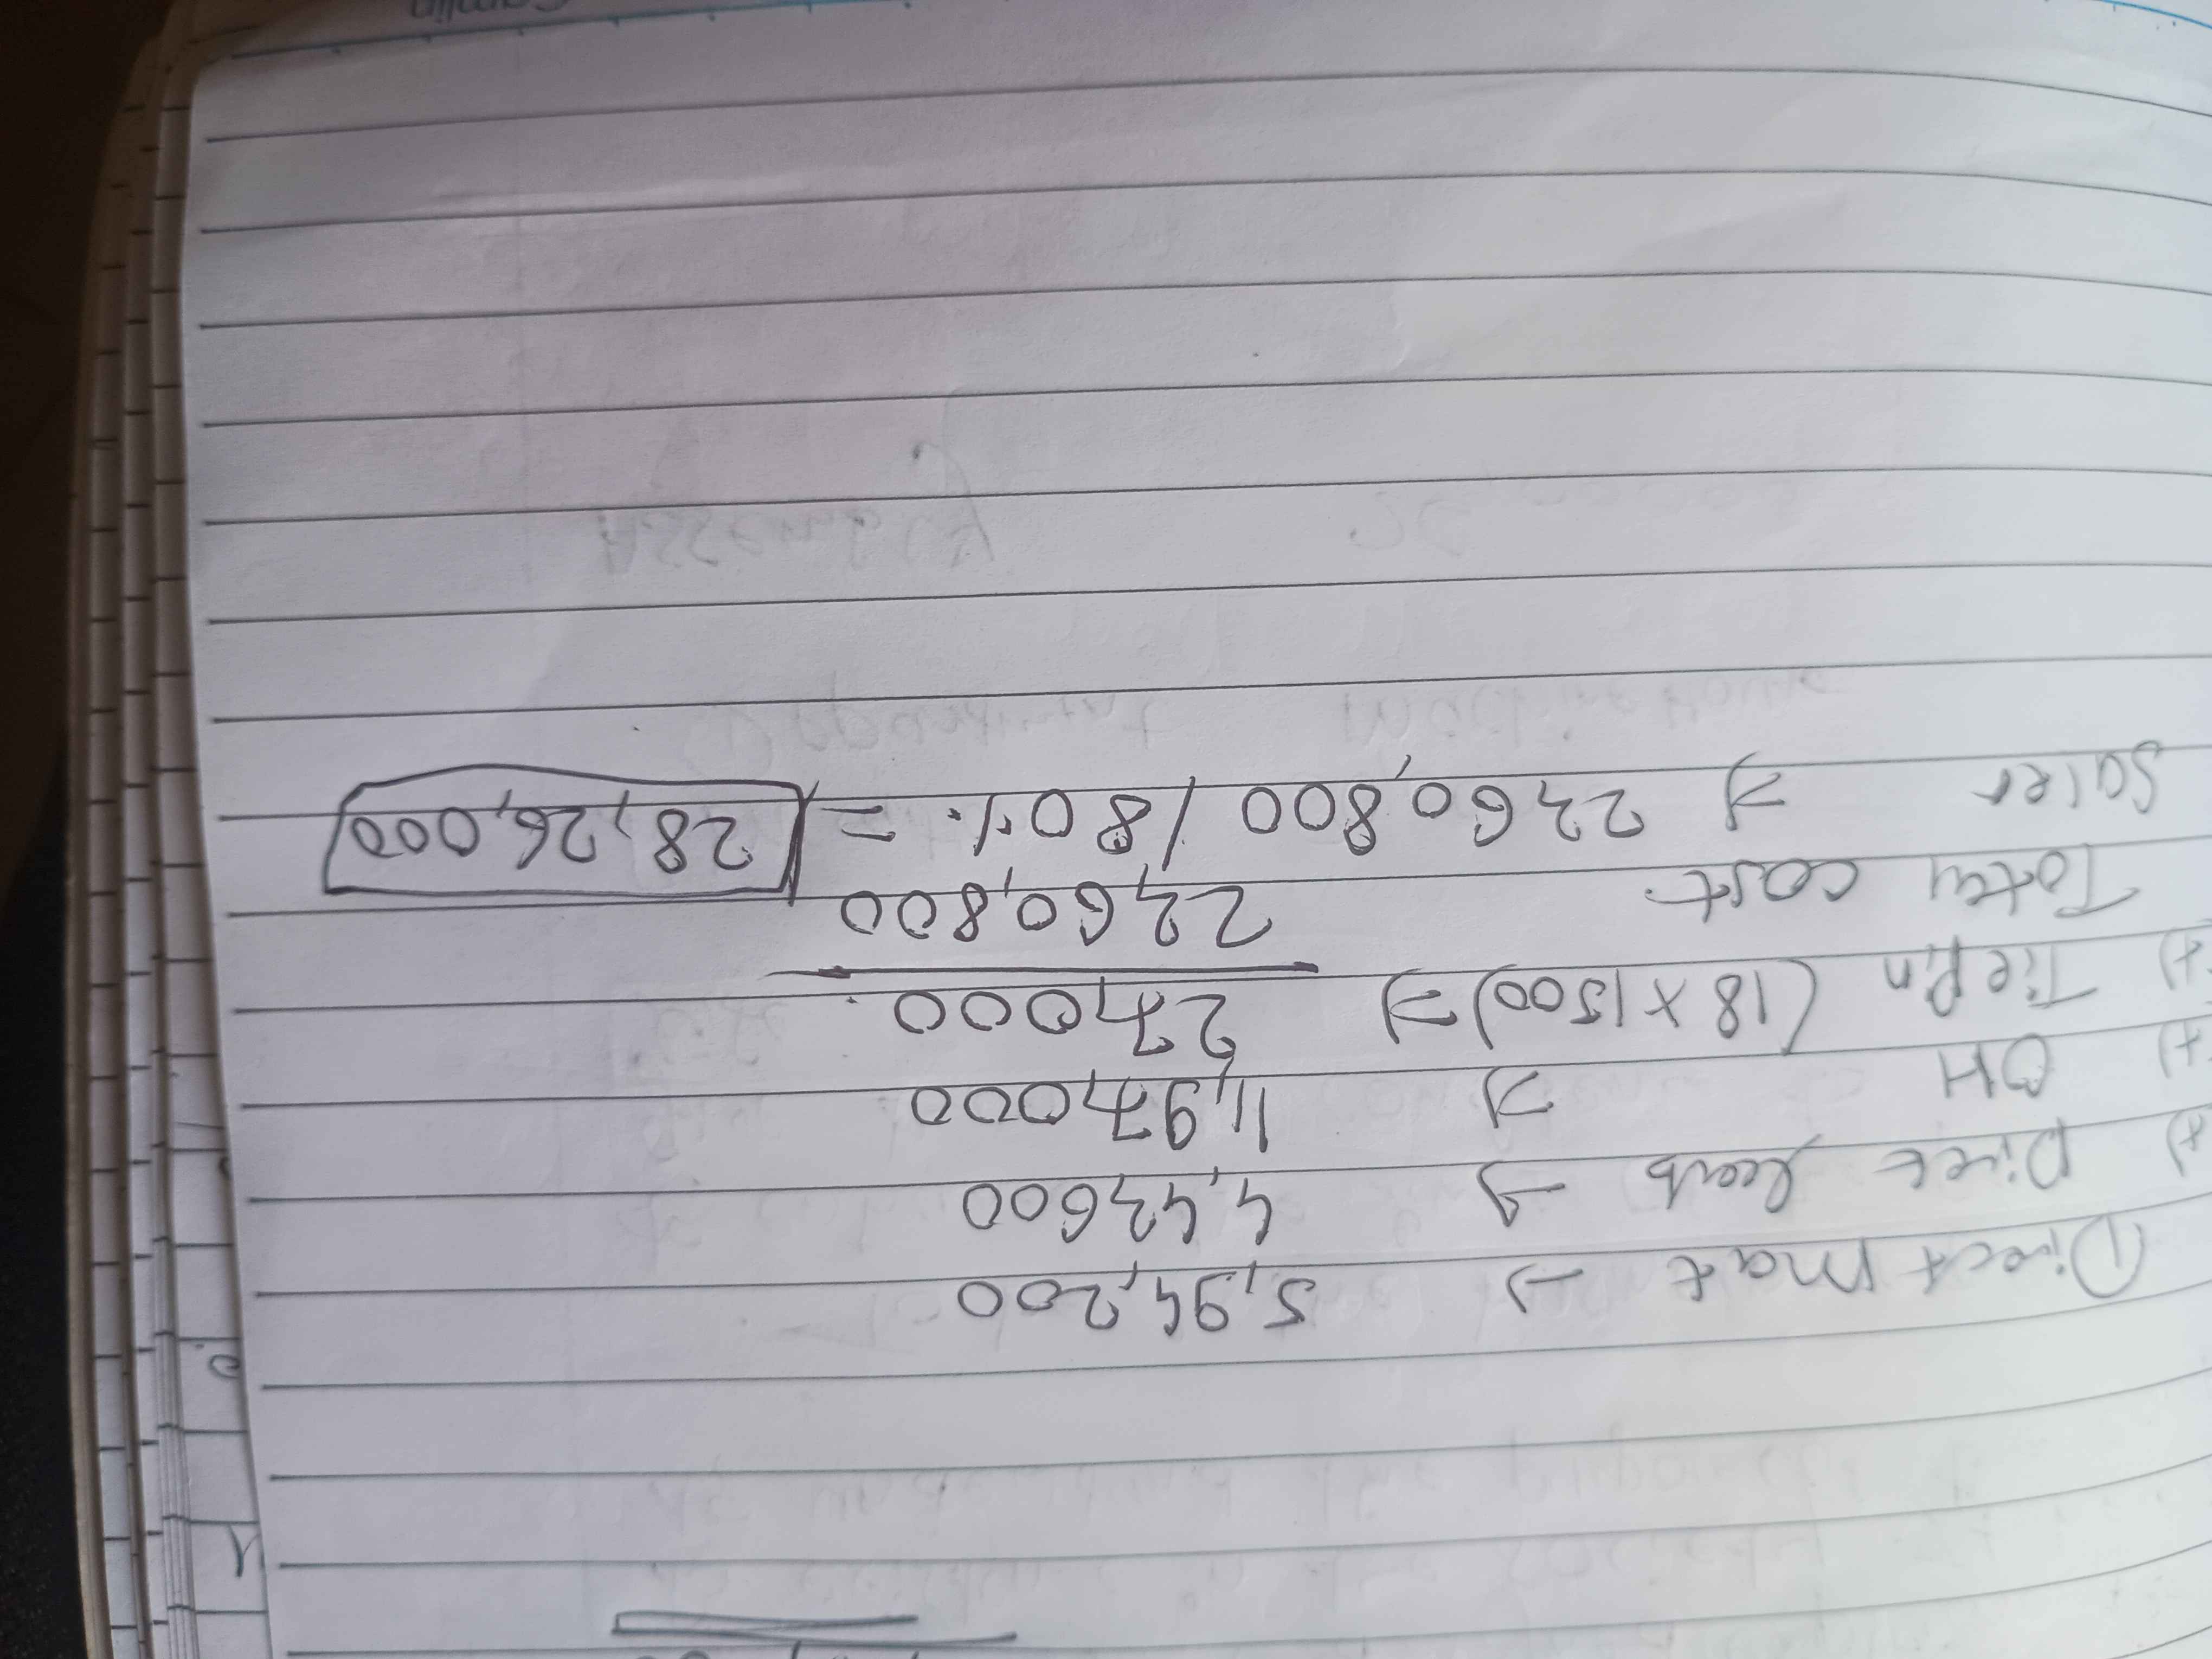 Direct mat → 5,94,200
+) Direct leab → 4,42,600
+) OH ⇒ 11,97,000
+) Tie Pin (18 x 1500) ⇒ 27,000
Total cost. 22,60,800
Sales ⇒ 22,60,800 / 80% = 28,26,000